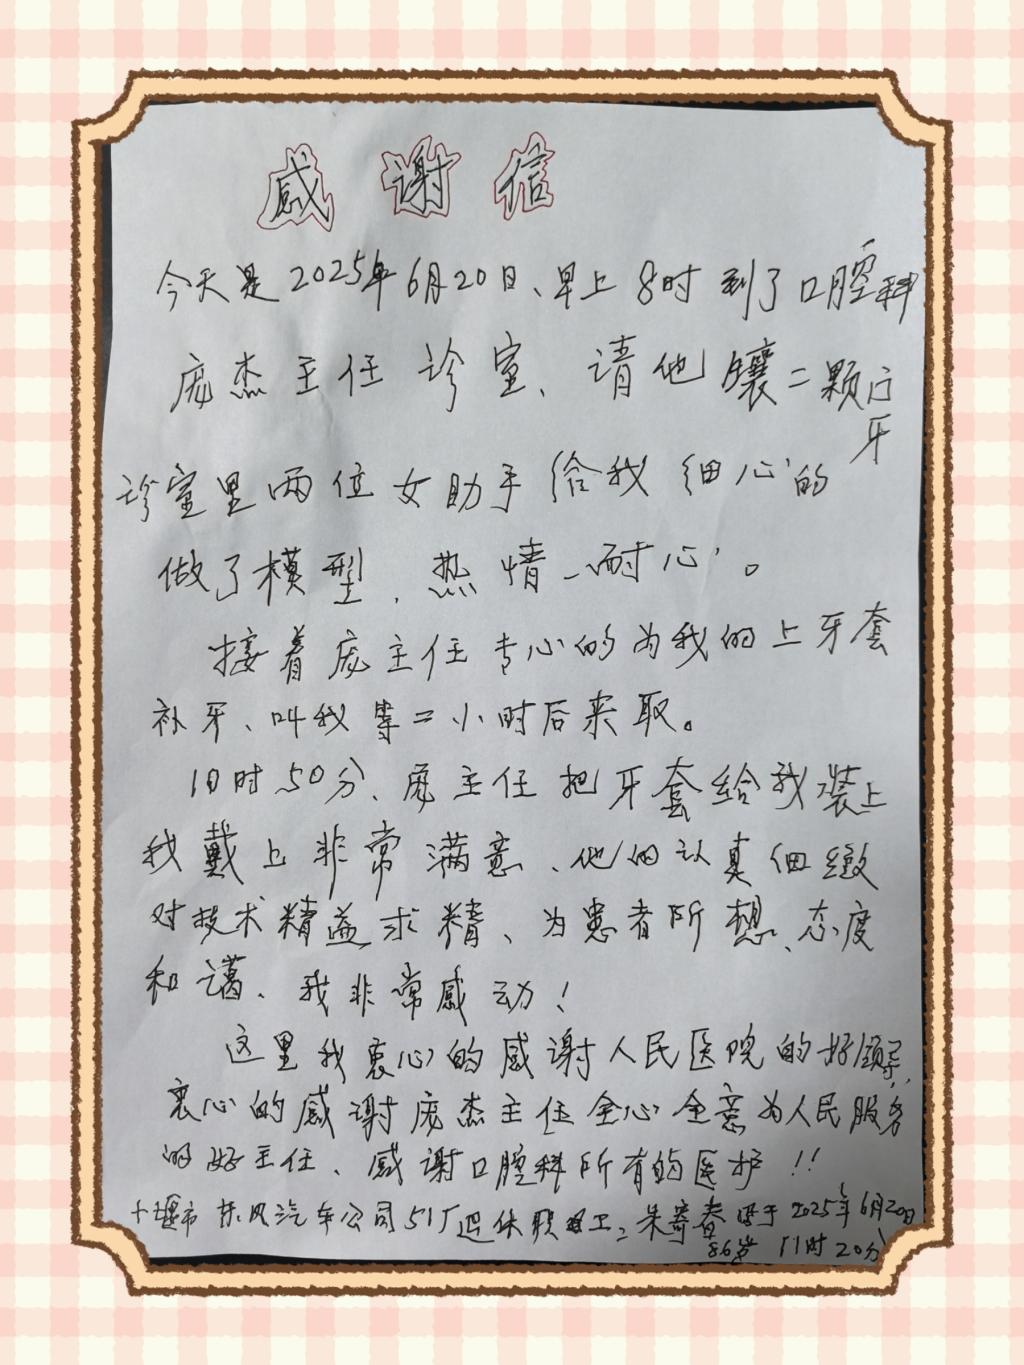 感谢信
今天是2025年6月20日、早上8时到了口腔科
庞杰主任诊室、请他镶二颗门牙
诊室里两位女助手给我细心的
做了模型、热情、耐心。
接着庞主任专心的为我的上牙套
补牙、叫我等二小时后来取。
10时50分、庞主任把牙套给我装上
我戴上非常满意、他的认真细致
对技术精益求精、为患者所想、态度
和谒、我非常感动!
这里我衷心的感谢人民医院的好领导,
衷心的感谢庞杰主任全心全意为人民服务
的好主任、感谢口腔科所有的医护!!
十堰市东风汽车公司51厂退休职工:朱寄春 于2025年6月20日
86岁 11时20分